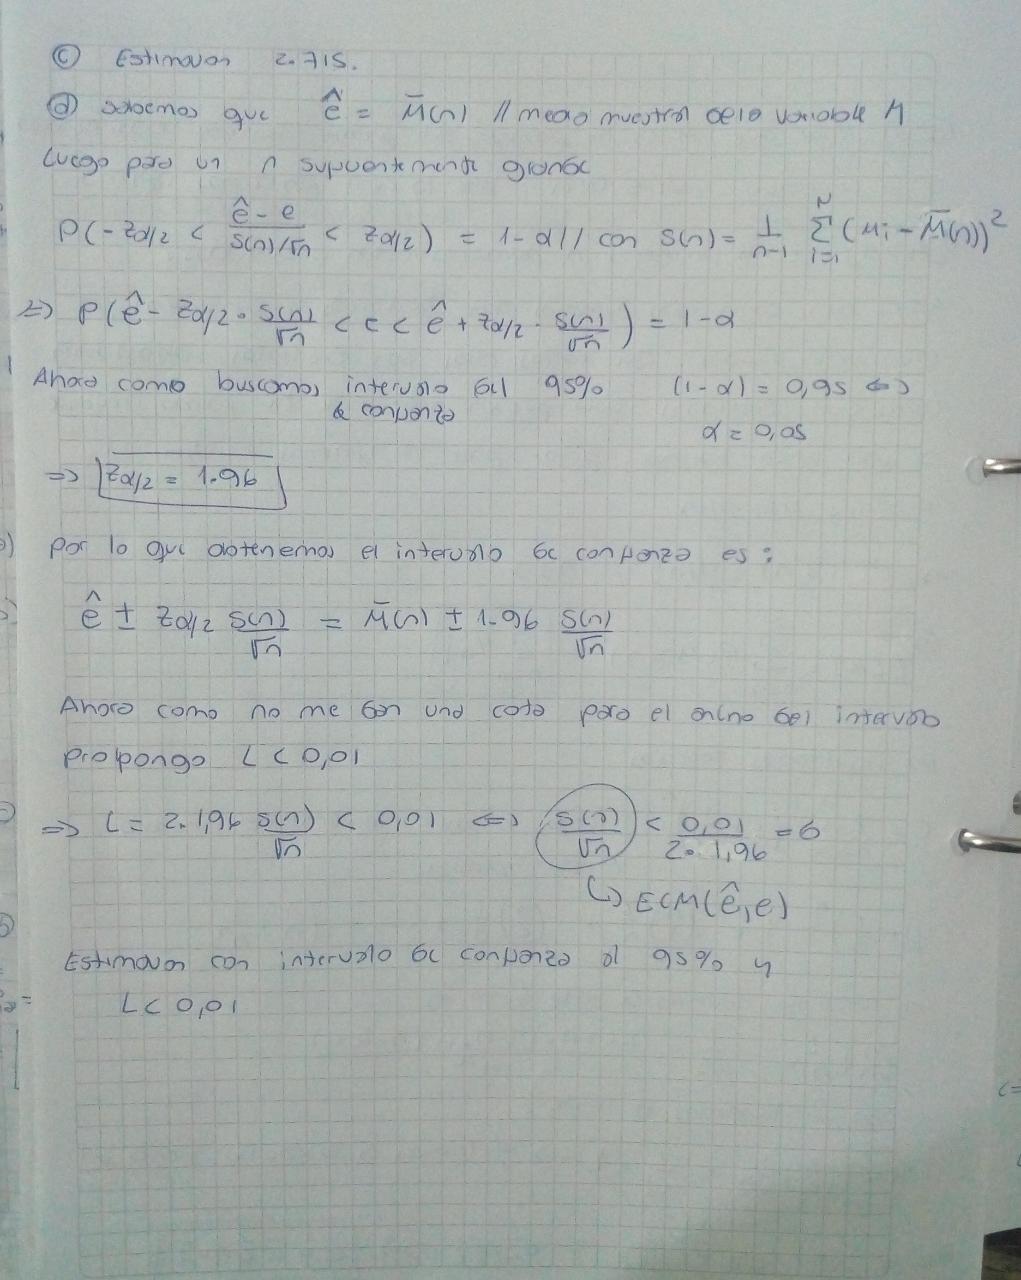 ⓒ Estimavan 2.715.
ⓓ sabemos que ê = M̄(n) // media muestral de la variable M
Luego para un n suficientemente grande
P(-zα/2 < (ê - e)/(S(n)/√n) < zα/2) = 1-α // con S(n) = 1/(n-1) Σ_{i=1}^{N} (Mi - M̄(n))²
⇔ P(ê - zα/2 · S(n)/√n < e < ê + zα/2 · S(n)/√n) = 1-α
Ahora como buscamos intervalo del 95% (1-α) = 0,95 ⇔
de confianza
α = 0,05
⇒ zα/2 = 1.96
Por lo que obtenemos el intervalo de confianza es:
ê ± zα/2 S(n)/√n = M̄(n) ± 1.96 S(n)/√n
Ahora como no me dan una cota para el ancho del intervalo
propongo L < 0,01
⇒ L = 2·1,96 S(n)/√n < 0,01 ⇔ S(n)/√n < 0,01/(2·1,96) = 6
↳ ECM(ê,e)
Estimavan con intervalo de confianza al 95% y
L < 0,01